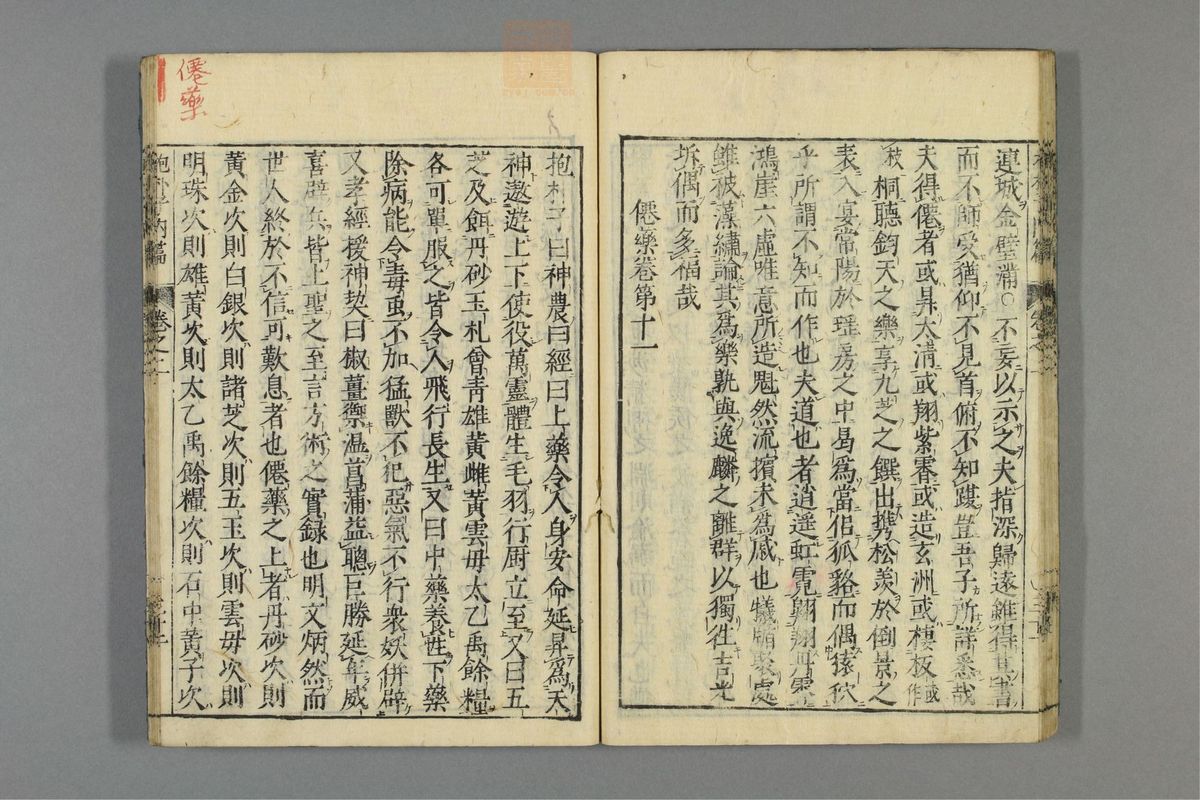 連城金璧滿○不妄以示之夫指深歸遠雖得其書
而不師受猶仰不見首俯不知跟豈吾子所詳悉哉
夫得僊者或昇太清或翔紫霄或造玄洲或棲板或作
板桐聽鈞天之樂享九芝之饌出携松羨於倒景之
表入宴常陽於瑤房之中曷爲當侶狐貉而偶猿狖
乎所謂不知而作也夫道也者逍遥虹霓翺翔丹霄
鴻崖六虛唯意所造魁然流擯未爲戚也犧腯聚處
雖被藻繡論其爲樂孰與逸麟之離群以獨往吉光
坼偶而多福哉
僊藥卷第十一
抱朴子曰神農曰經曰上藥令人身安命延昇爲天
神遨遊上下使役萬靈體生毛羽行厨立至又曰五
芝及餌丹砂玉札曾青雄黃雌黃雲母太乙禹餘糧
各可單服之皆令人飛行長生又曰中藥養性下藥
除病能令毒虫不加猛獸不犯惡氣不行衆妖併辟
又孝經援神契曰椒薑禦温菖蒲益聰巨勝延年威
喜辟兵皆上聖之至言方術之實録也明文炳然而
世人終於不信可歎息者也僊藥之上者丹砂次則
黃金次則白銀次則諸芝次則五玉次則雲母次則
明珠次則雄黃次則太乙禹餘糧次則石中黃子次
抱朴子内篇 卷之二
僊藥